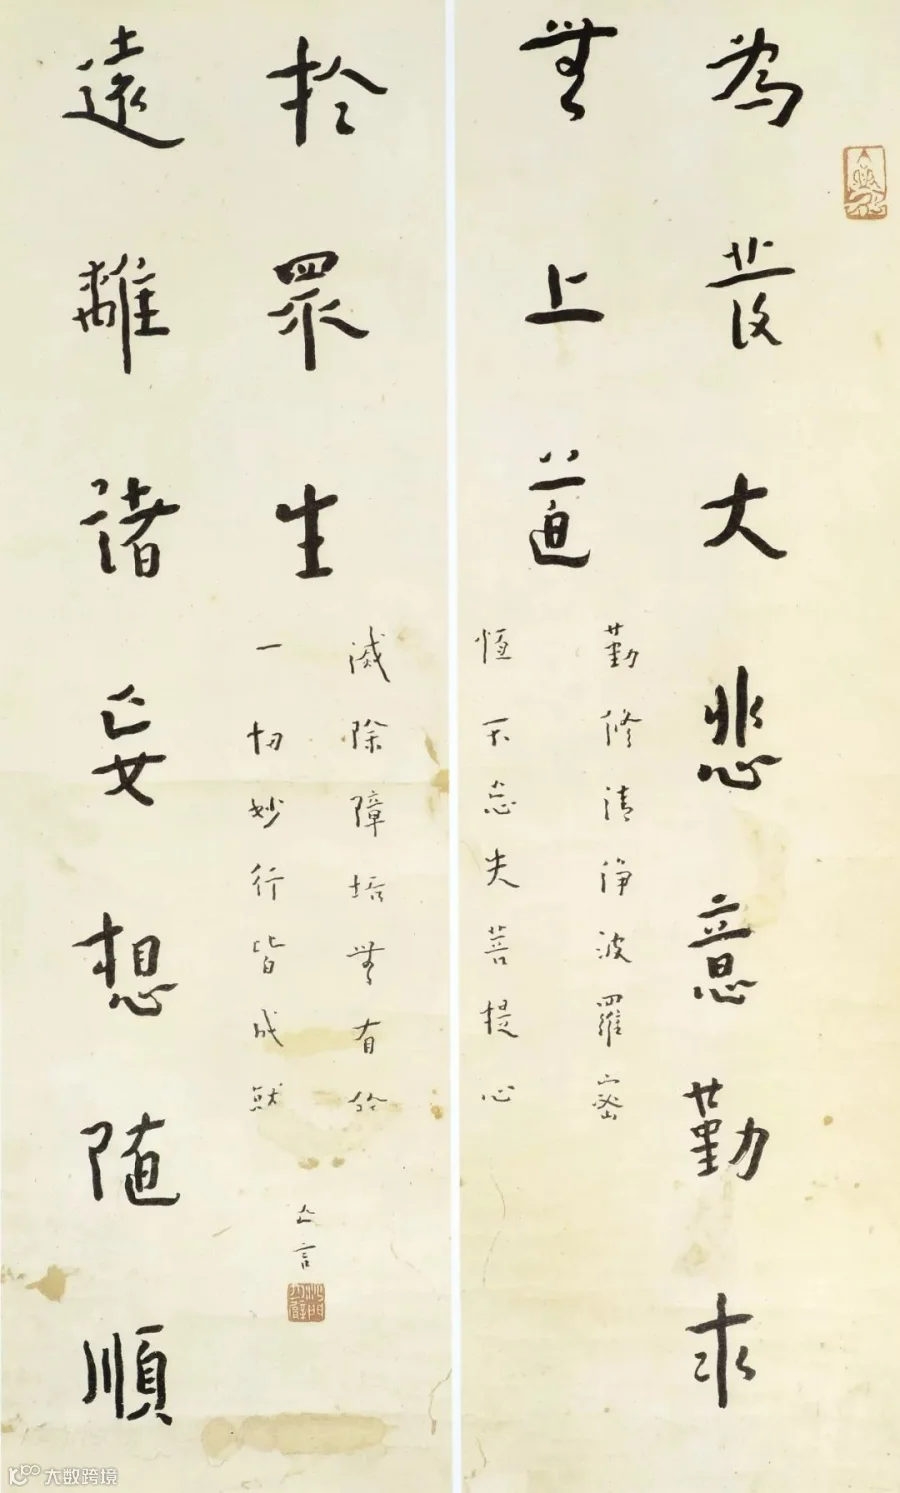 為發大悲意勤求
無上道
勤修清淨波羅蜜
恆不忘失菩提心
遠離諸妄想隨順
於眾生
滅除障垢無有餘
一切妙行皆成就
亡言
大数跨境